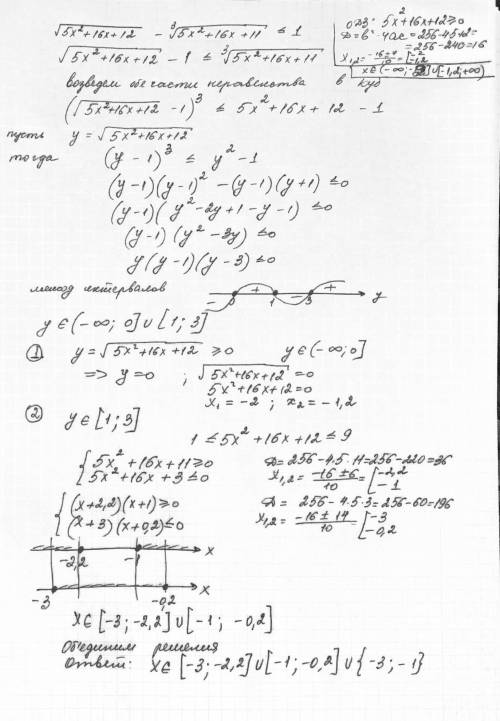 √5x²+16x+12 - ³√5x²+16x+11 ≤ 1
ОДЗ: 5x²+16x+12≥0
D=b²-4ac=256-4·5·12=
=256-240=16
x₁,₂ = -16±4/10 = [-2 -1,2
x∈(-∞;-2]∪[-1,2;+∞)
√5x²+16x+12 - 1 ≤ ³√5x²+16x+11
возведем обе части неравенства в куб
(√5x²+16x+12 -1)³ ≤ 5x²+16x+12 -1
пусть y = √5x²+16x+12
тогда (y-1)³ ≤ y²-1
(y-1)(y-1)² -(y-1)(y+1)≤0
(y-1)(y²-2y+1-y-1) ≤0
(y-1)(y²-3y) ≤0
y(y-1)(y-3)≤0
метод интервалов
- 0 + 1 - 3 + y
y∈(-∞; 0]∪[1; 3]
① y=√5x²+16x+12 ≥0 y∈(-∞;0]
=> y=0 ; √5x²+16x+12 =0
5x²+16x+12=0
x₁=-2 ; x₂=-1,2
② y∈[1;3]
1 ≤5x²+16x+12≤9
{5x²+16x+11≥0
5x²+16x+3≤0
D=256-4·5·11=256-220=36
x₁,₂= -16±6/10 =[-2,2 -1
{(x+2,2)(x+1)≥0
(x+3)(x+0,2)≤0
D= 256-4·5·3=256-60=196
x₁,₂= -16±14/10 [-3 -0,2
-2,2 -1 x
-3 -0,2 x
x∈[-3;-2,2]∪[-1; -0,2]
Объединим решения
Ответ: x∈[-3;-2,2]∪[-1;-0,2]∪{-3;-1}